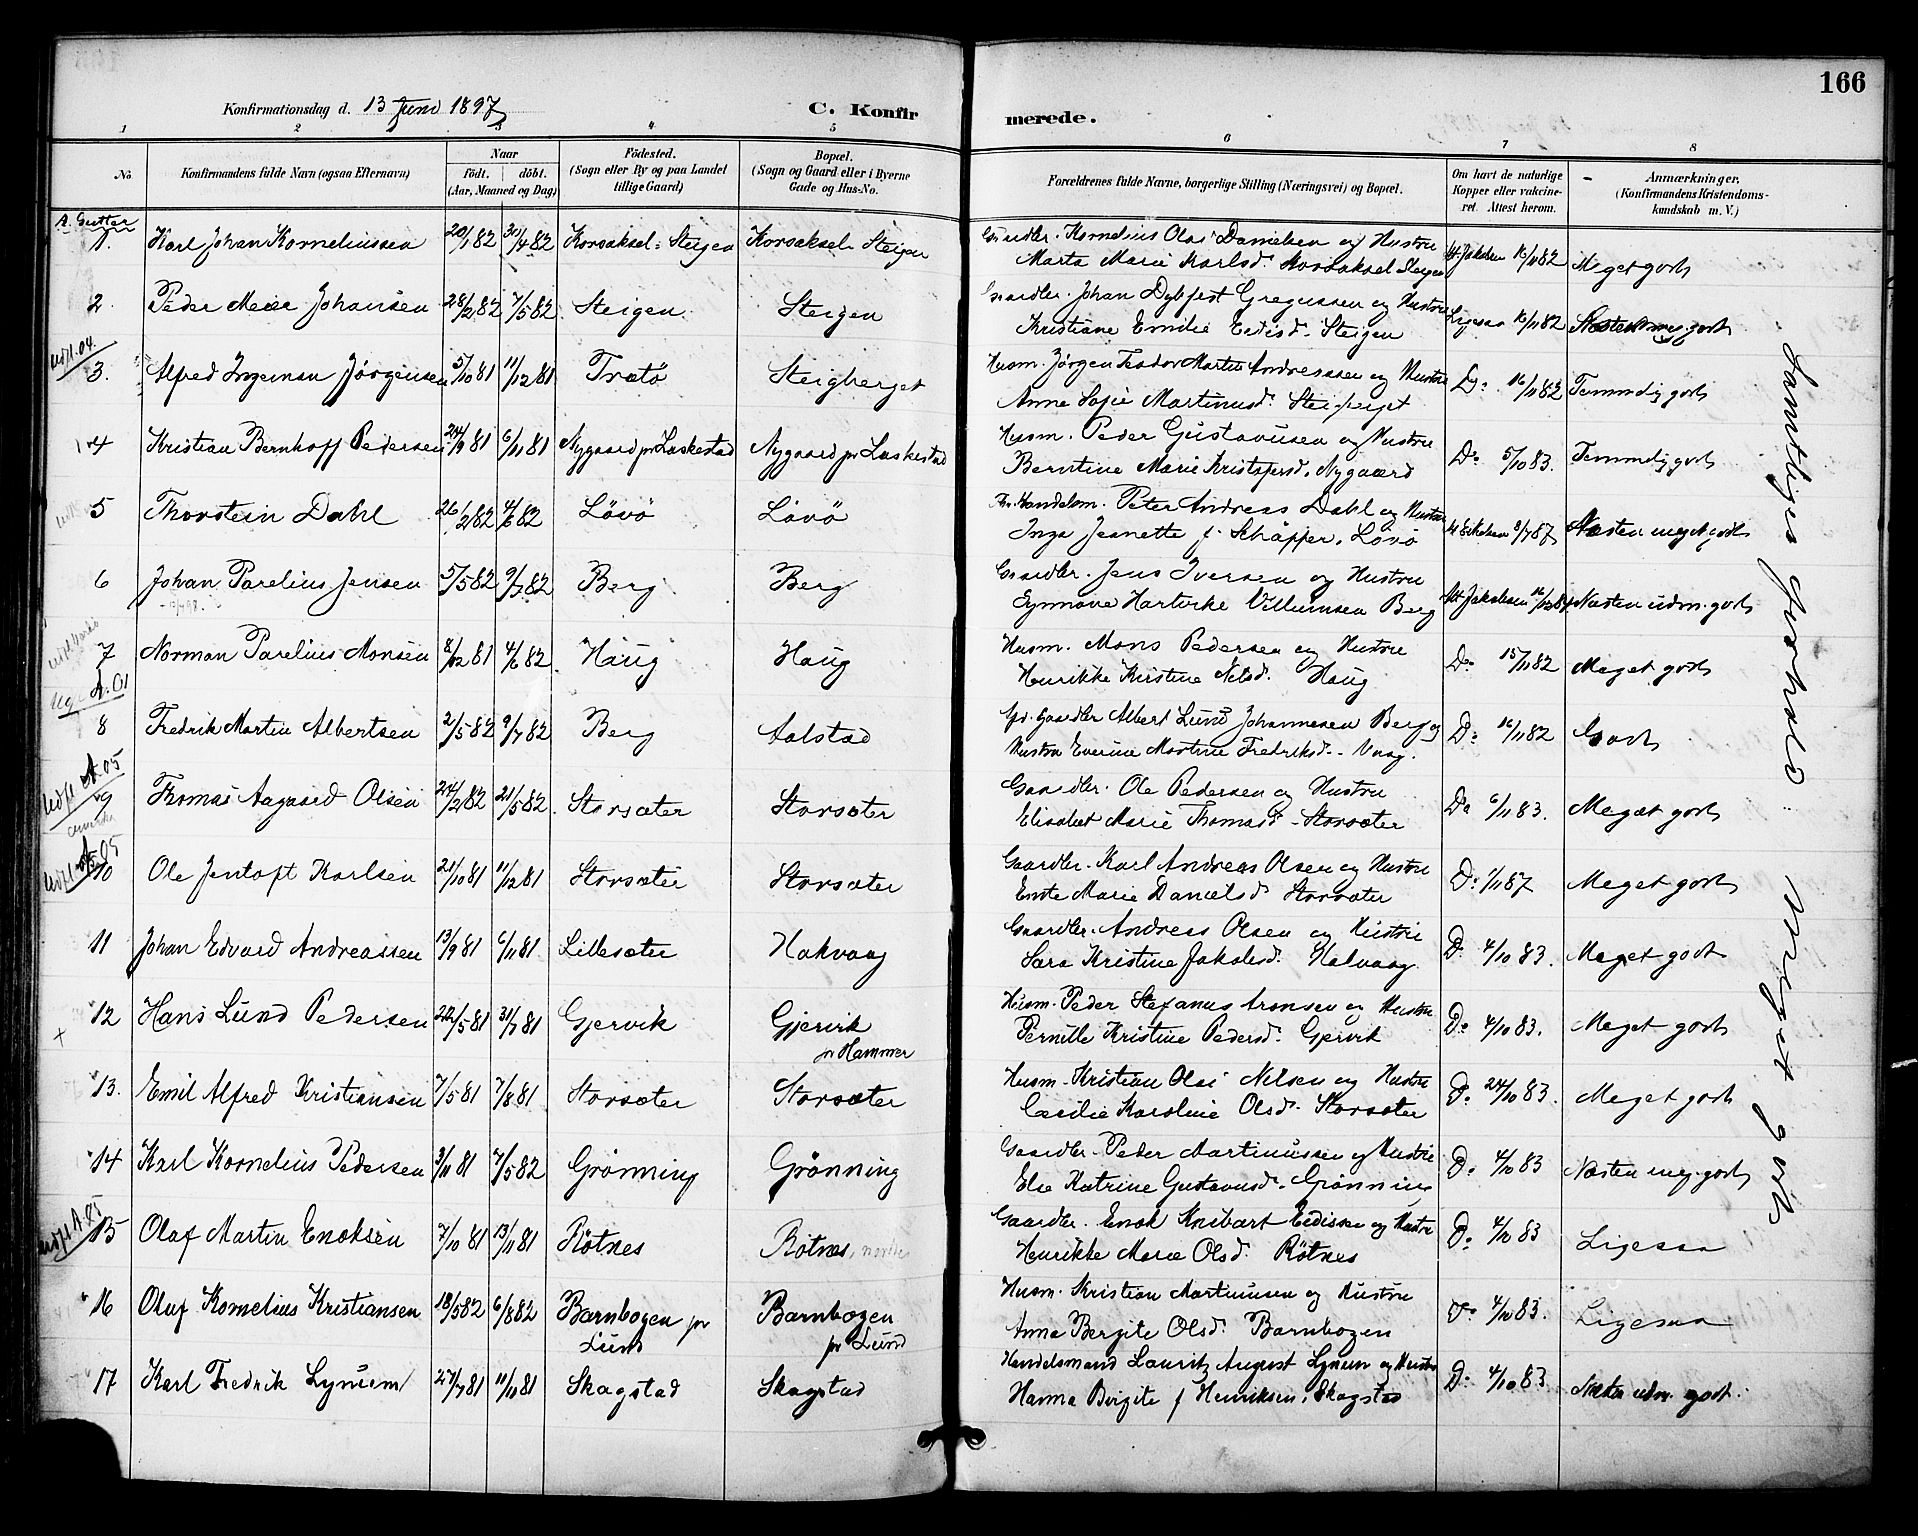 166
Konfirmationsdag d. 13 Juni 1897
C. Konfir
merede.
1 2 3 4 5 6 7 8
No
Konfirmandens fulde Navn (ogsaa Efternavn)
Naar
födt. döbt.
(Aar, Maaned og Dag)
Födested.
(Sogn eller By og paa Landet
tillige Gaard)
Bopæl.
(Sogn og Gaard eller i Byerne
Gade og Hus-No.
Forældrenes fulde Navne, borgerlige Stilling (Næringsvei) og Bopæl.
Om havt de naturlige
Kopper eller vakcine-
ret. Attest herom.
Anmærkninger,
(Konfirmandens Kristendoms-
kundskab m. V.)
A. Gutter
1. Karl Johan Korneliussen 20/1 82 30/4 82 Korsaksel Steigen Korsaksel Steigen Gaardbr. Kornelius Olai Danielsen og Hustru
Marta Marie Karlsd. Korsaksel Steigen Att. Jakobsen 16/11 82 Meget godt
2. Peder Meier Johansen 28/2 82 7/5 82 Steigen Steigen Gaardbr. Johan Dybfest Gregussen og Hustru
Kristiane Emilie Eedisd. Steigen Ligesaa 16/11 82 Næsten meg. godt
udfl. 04.
3. Alfred Ingeman Jørgensen 5/10 81 11/12 81 Tratö Steigberget Husm. Jørgen Teodor Martin Andreassen og Hustru
Anne Sofie Martinusd. Steigberget Do 16/11 82 Temmelig godt
4 Kristian Bernhoff Pedersen 24/9 81 6/11 81 Nygaard pr Laskestad Nygaard pr Laskestad Husm. Peder Gustavusen og Hustru
Berntine Marie Kristofersd. Nygaard Do 5/10 83. Temmelig godt
5 Thorstein Dahl 26/2 82 4/6 82 Lövö Lövö Handelsm. Peter Andreas Dahl og Hustru
Inga Jeanette f. Schäffer. Lövö 8/7 87 Næsten meget godt
6 Johan Parelius Jensen 5/5 82 9/7 82 Berg Berg Gaardbr. Jens Iversen og Hustru
Hartvike Villumsen Berg Att Jakobsen Næsten udm. godt
7 Norman Parelius Monsen 8/12 81 4/6 82 Haug Haug Husm. Mons Pedersen og Hustru
Henrikke Kirstine Nilsd. Haug Do 15/11 82 Meget godt
A. 01
8 Fredrik Martin Albertsen 2/5 82 9/7 82 Berg Aalstad Gaardbr Albert Lund Johannesen Berg og
Hustru Everine Martine Fredriksd. Vaag. Do 16/11 82 Godt
udfl A. 05
9 Thomas Aagaard Olsen 24/2 82 21/5 82 Storsæter Storsæter Gaardbr. Ole Pedersen og Hustru
Elisabet Marie Thomasd. Storsæter Do 6/11 83. Meget godt
udfl A. 05
10 Ole Jentoft Karlsen 21/10 81 11/12 81 Storsæter Storsæter Gaardbr. Karl Andreas Olsen og Hustru
Marie Danielsd. Storsæter Do 1/11 87 Meget godt
11 Johan Edvard Andreassen 13/9 81 6/11 81 Lillesæter Hakvaag Gaardbr. Andreas Olsen og Hustru
Sara Kristine Jakobsd. Do 4/10 83. Meget godt
+
12 Hans Lund Pedersen 22/5 81 31/7 81 Gjervik Gjervik
pr Hammer Husm. Peder Stefanus Aronsen og Hustru
Pernille Kristine Pedersd. Gjervik Do 4/10 83. Meget godt
13. Emil Alfred Kristiansen 7/5 81 7/8 81 Storsæter Storsæter Husm. Kristian Olai Nilsen og Hustru
Cæcilie Karoline Olsd. Storsæter Do 24/10 83. Meget godt
14 Karl Kornelius Pedersen 3/11 81 7/5 82 Grönning Grönning Gaardbr. Peder Martinussen og Hustru
Else Katrine Gustavusd. Grönning Do 4/10 83 Næsten meg. godt
udfl A. 05
15 Olaf Martin Enoksen 7/10 81 13/11 81 Rötnes Rötnes, Gaardbr. Enok Knibart Eedissen og Hustru
Henrikke Marie Olsd. Rötnes Do 4/10 83 Ligesaa
16 Oluf Kornelius Kristiansen 18/5 82 6/8 82 Barnbogen pr
Lund Barnbogen
pr Lund Husm. Kristian Martinusen og Hustru
Anna Bergite Olsd. Barnbogen Do 4/10 83. Ligesaa
17 Karl Fredrik Lynum 27/7 81 11/11 81 Skagstad Skagstad Handelsmand Lauritz August Lynum og Hustru
Hanna Birgite f Henriksen, Skagstad Do 4/10 83 Næsten udm. godt.
Samtliges Forhold Meget godt